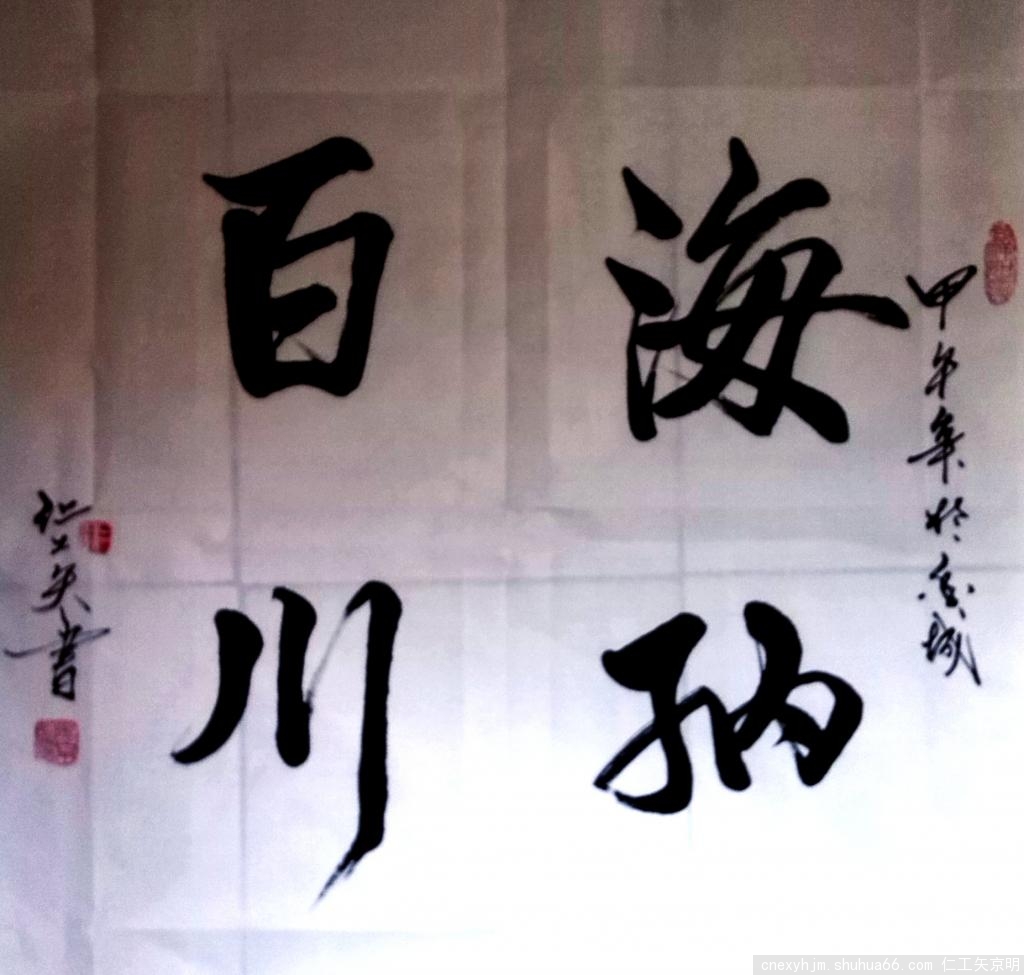 甲午年於京城
海纳
百川
仁工矢书
cnexyhjm shuhua66.com 仁工矢京明